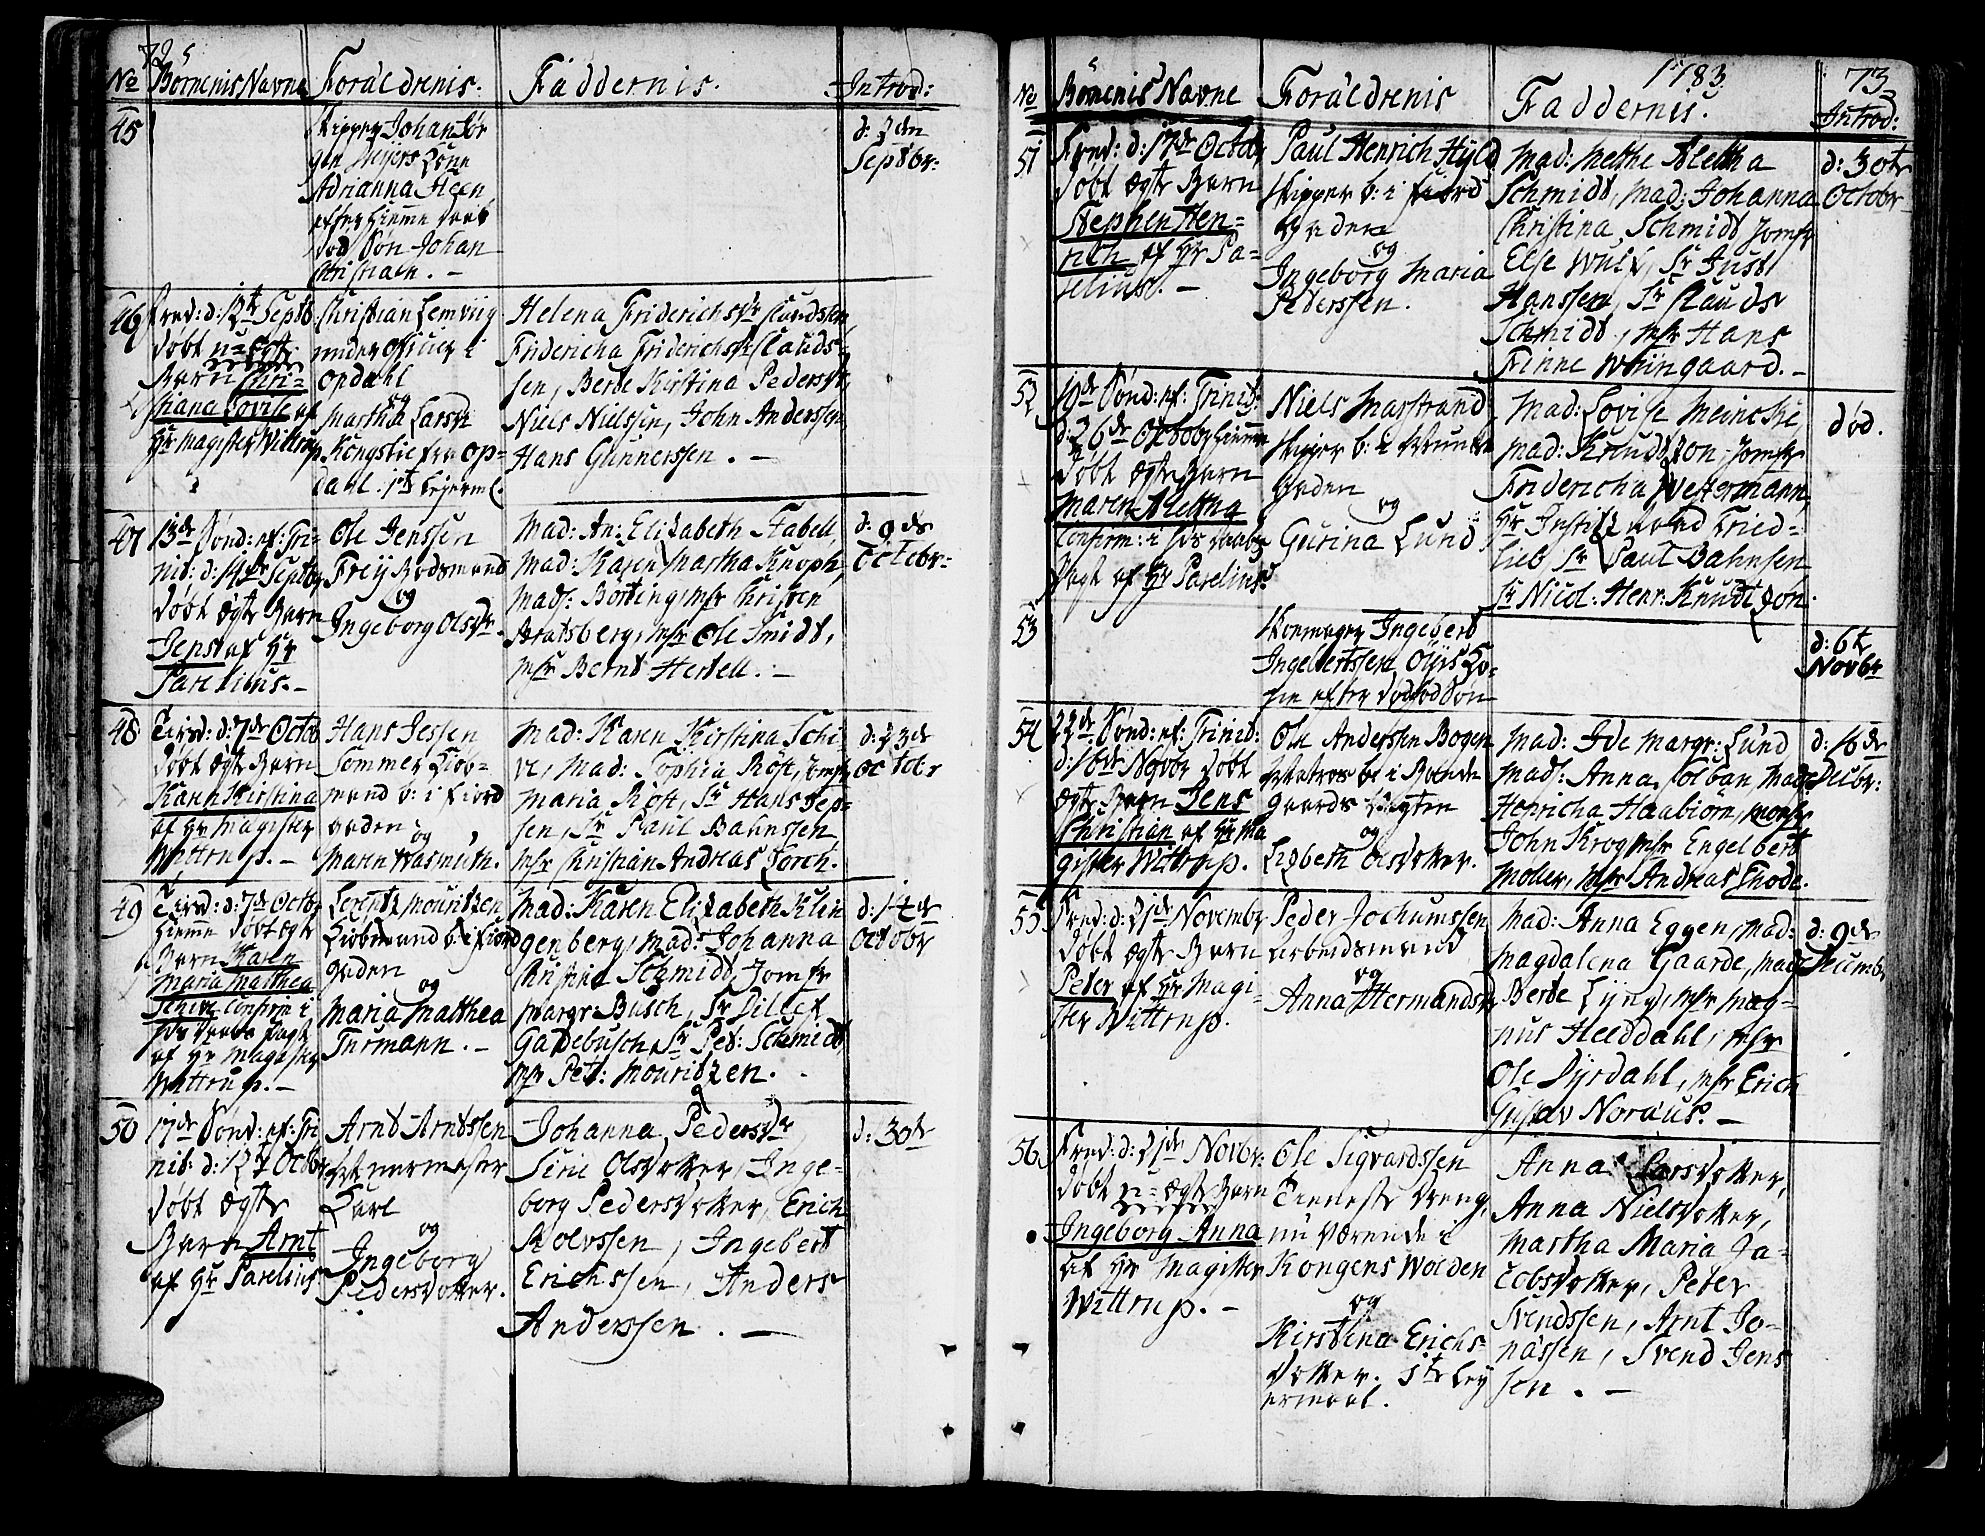 72
No Börnenis Navne Forældrenis. Faddernis. Introd:
45
Skipper Johan Jør
gen Meyers Kone
Adrianna Steen
efter hiemme døbt
død Søn Johan
Christian. -
d: 2den
Septbr:
46
Fred: d: 12te Septb
døbt u-ægte
Barn Chri-
stiana Lovise af
Hr Magister Wittrup
Christian Lemviig
under officier i
Opdahl
og
Martha Larsdr
Kongslie fra Op-
dahl. 1te Leierm.
Helena Friderichsdr Claudssen,
Fridericha Friderichsdr Clauds-
sen, Berte Kirstina Pedersdr,
Niels Nielssen, John Anderssen,
Hans Gunnerssen. -
47
13de Sønd: ef: Tri-
nit: d: 14de Septbr
døbt ægte Barn
Jens af Hr
Parelius. -
Ole Jenssen
Frey Bodsmand
og
Ingeborg Olsdr.
Mad: An: Elizabeth Fabell,
Mad: Karen Martha Knoph,
Mads: Bosting, Msr Christen
Aratsberg, Msr Ole Smidt,
Msr Bernt Hertell. -
d: 9de
Octobr-
48
Tirsd: d: 7de Octob
døbt ægte Barn
Karen Kirstina
af Hr Magister
Wittrup. -
Hans Jessen
Sommer Kiøb-
mand b: i Fiord
gaden og
Maren Wasmuth.
Mad: Karen Kirstina Schi-
ve, Mad: Sophia Røst, Jomfr
Maria Røst, Sr Hans Jep-
sen, Sr Paul Bahnssen
Msr Christian Andreas Lorch.
d: 23de
Octobr
49
Tirsd: d: 7de Octob
hiemme døbt ægte
Barn Karen
Maria Matthea
Schive confirm i
hds daabs Pagt
af Hr Magister
Wittrup. -
Lorentz Mouritzen
Kiøbmand b: i Fiord
gaden
og
Maria Matthea
Turmann. -
Mad: Karen Elizabeth Klin
genberg, Mad: Johanna
Christina Schmidt, Jomfr
Margr: Busch, Sr Dillef
Gadebusch, Sr Pet: Schmidt,
Msr Pet: Mouritzen.
d: 14de
Octobr
50
17de Sønd: ef: Tri
nit: d: 12te Octobr
døbt ægte
Barn Arnt
af Hr Parelius
Arnt Arntssen
Karl
og
Ingeborg
Pedersdotter.
Johanna Pedersdr
Siri Olsdotter, Inge-
borg Pedersdotter, Erich
Rolvssen, Ingebert
Erichssen, Anders
Anderssen. -
d: 30de
1783. 73
No Börnenis Navne Forældrenis Faddernis. Introd:
51
Fred: d: 17de Octobr
døbt ægte Barn
Stephen Hen-
rich af Hr Pa-
relius. -
Paul Henrich Hyld
Skipper b: i Fiord
gaden
og
Ingeborg Maria
Pederssen.
Mad: Methe Aletha
Schmidt, Mad: Johanna
Christina Schmidt Jomfr
Else Wulf, Sr Just
Hanssen, Sr Clauds
Schmidt, Msr Hans
Finne Wiingaard. -
d: 30te
Octobr-
52
19de Sønd: ef: Trinit:
d: 26de Octobr hiemme
døbt ægte Barn
Maren Aletha
Confirm: i hds daabs
Pagt af Hr Parelius.
Niels Masstrand
Skipper b: i Strand
gaden
og
Gurina Lund
Mad: Lovise Meincke,
Mad: Knudtzon, Jomfr
Fridericha Westermann,
Hr Justitz Raad Fried-
lieb Sr Paul Bahnsen
Sr Nicol: Henr: Knudtzon.
død.
53
Skomager Ingebert
Ingebertssen Oyes Ko-
ne efter dødfød Søn
d: 6te
Novbr
54
22de Sønd: ef: Trinit:
d: 16de Novbr døbt
ægte Barn Jens
Christian af Hr Ma
gister Wittrup.
Ole Anderssen Bogen
Matros b: i Brende
gaards Smugten
og
Lisbeth Olsdotter.
Mad: Ide Margr: Lund
Mads: Anna Solban Mads
Henricha Haabiørn, Monsr
John Krog, Msr Engelbert
Møller, Msr Andreas Thode.
d: 16de
Decbr:
55
Fred: d: 21de Novembr
døbt ægte Barn
Peter af Hr Magi-
ster Wittrup.
Peder Jochumssen
arbeidsmand
og
Anna Hermandsdr
Mad: Anna Eggen, Mad:
Magdalena Gaarde, Mads
Berte Lyng, Msr Mag-
nus Heddahl, Msr
Ole Dyrdahl, Msr Erich
Gustav Noræus. -
d: 9de
Decembr
56
Fred: d: 21de Novbr:
døbt u-ægte Barn
Ingeborg Anna
af Hr Magister
Wittrup. -
Ole Sigvardssen
Tieneste Dreng,
nu værende i
Kongens Wolden
og
Kirstina Erichs-
dotter. 1te Ley
ermaal.
Anna Larsdotter,
Anna Nielsdotter,
Martha Maria Ja-
cobsdotter, Peter
Svendssen, Arnt Jo-
nassen, Svend Jens
sen. -